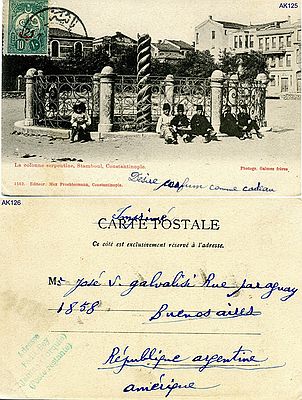 AK125
10
La colonne serpentine, Stamboul, Constantinople.
Photogr. Gaimes frères
Désire parfum comme cadeau
Editeur: Max Fruchtermann, Constantinople.
AK126
Imprimé
CARTE POSTALE
Ce côté est exclusivement réservé à l'adresse.
Mr José S. galvalisi Rue paraguay
1858 Buenos aires
République argentine
amérique